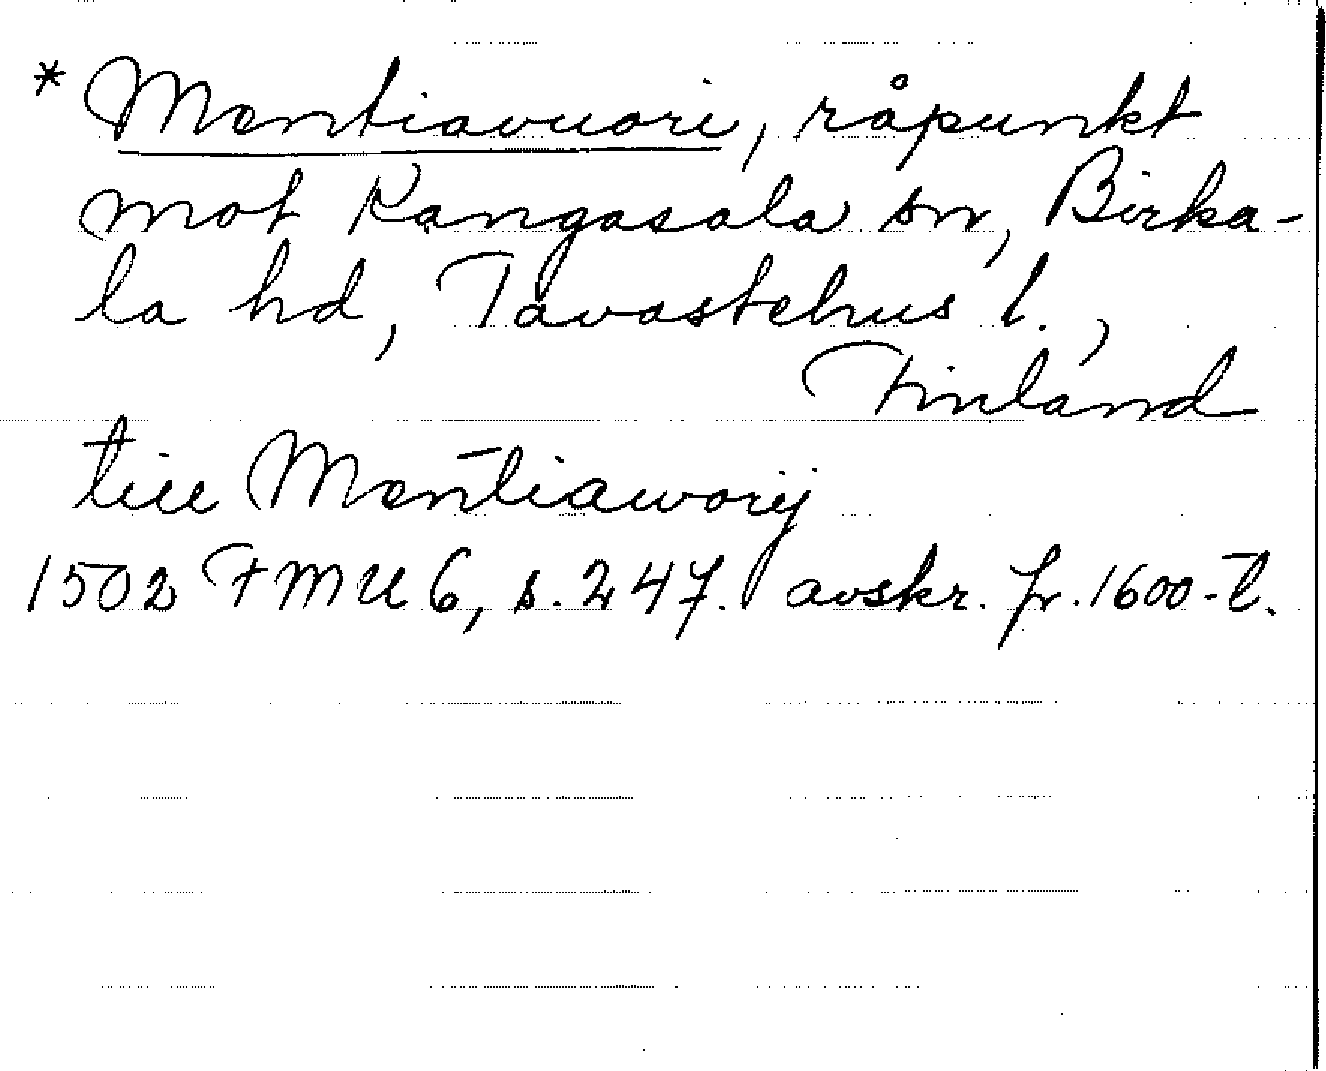 * Mentiavuori, råpunkt
mot Kangasala sn, Birka-
la hd, Tavastehus l.,
Finland
till Mentiaworij
1502 FMU 6, s. 247. avskr. fr. 1600-t.